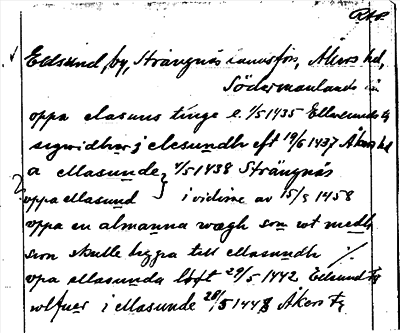 RAP.
Edsund, by, Strängnäs landsförs, Åkers hd,
Södermanlands län
oppa elasuns tinge e. 1/5 1435 Ellasunda
sigwidhær j elesundh eft 19/6 1437 Åkers hd
a ellasunde 4/5 1438 Strängnäs
oppa ellasund } i vidime av 15/5 1458
oppa en almanna wægh som wt medh
som skulle byggia till ellasundh
vpa ellasunda 29/5 1442 Edsund
i ellasunde 28/5 1448 Åkers